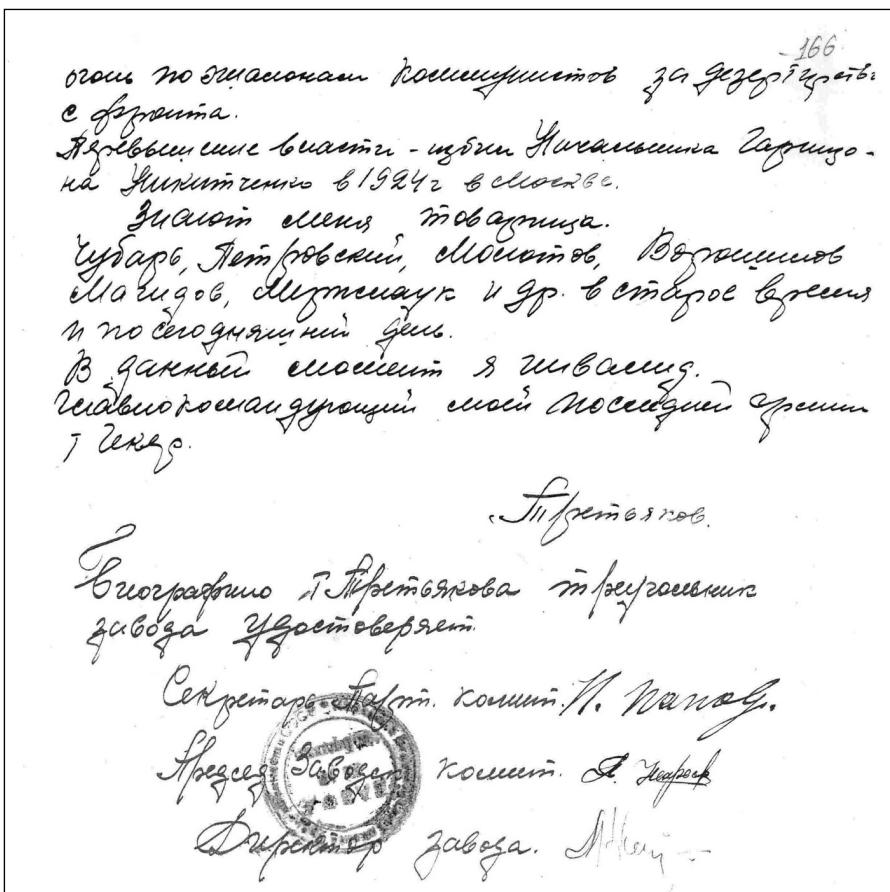 166
огонь по эшалонам коммунистов за дезертирство
с фронта.
Превышение власти - избил Начальника Гарнизо-
на Никитченко в 1924 г в Москве.
Знают меня товарища.
Чубарь, Петровский, Молотов, Ворошилов
Магидов, Межлаук и др. в старое время
и по сегодняшний день.
В данный момент я инвалид.
Главнокомандующий моей последней армии
т
Третьяков.
Биографию т Третьякова треугольник
завода удостоверяет.
Секретарь Парт. комит. И. Попов
Председ Заводск комит.
Директор завода.